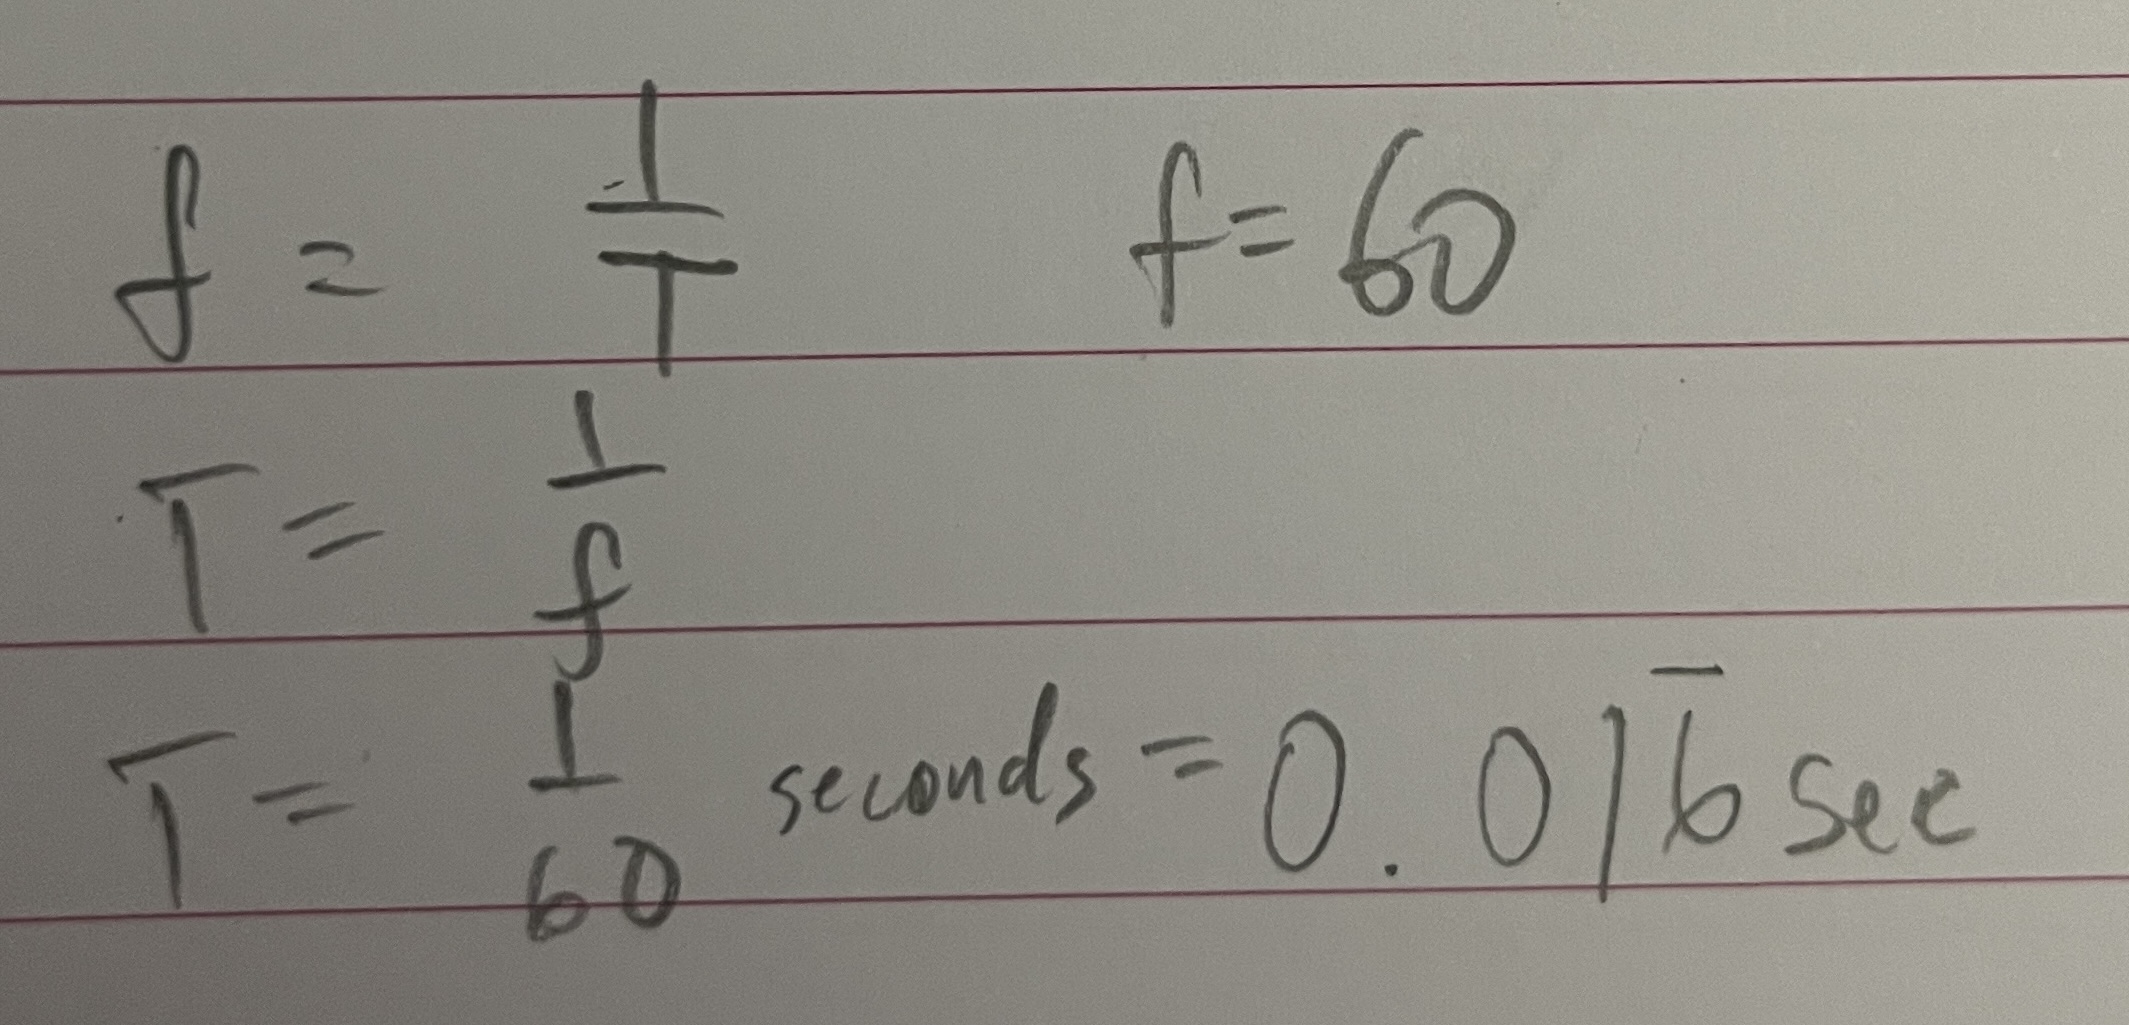 f = 1/T f = 60
T = 1/f
T = 1/60 seconds = 0.016̅ sec